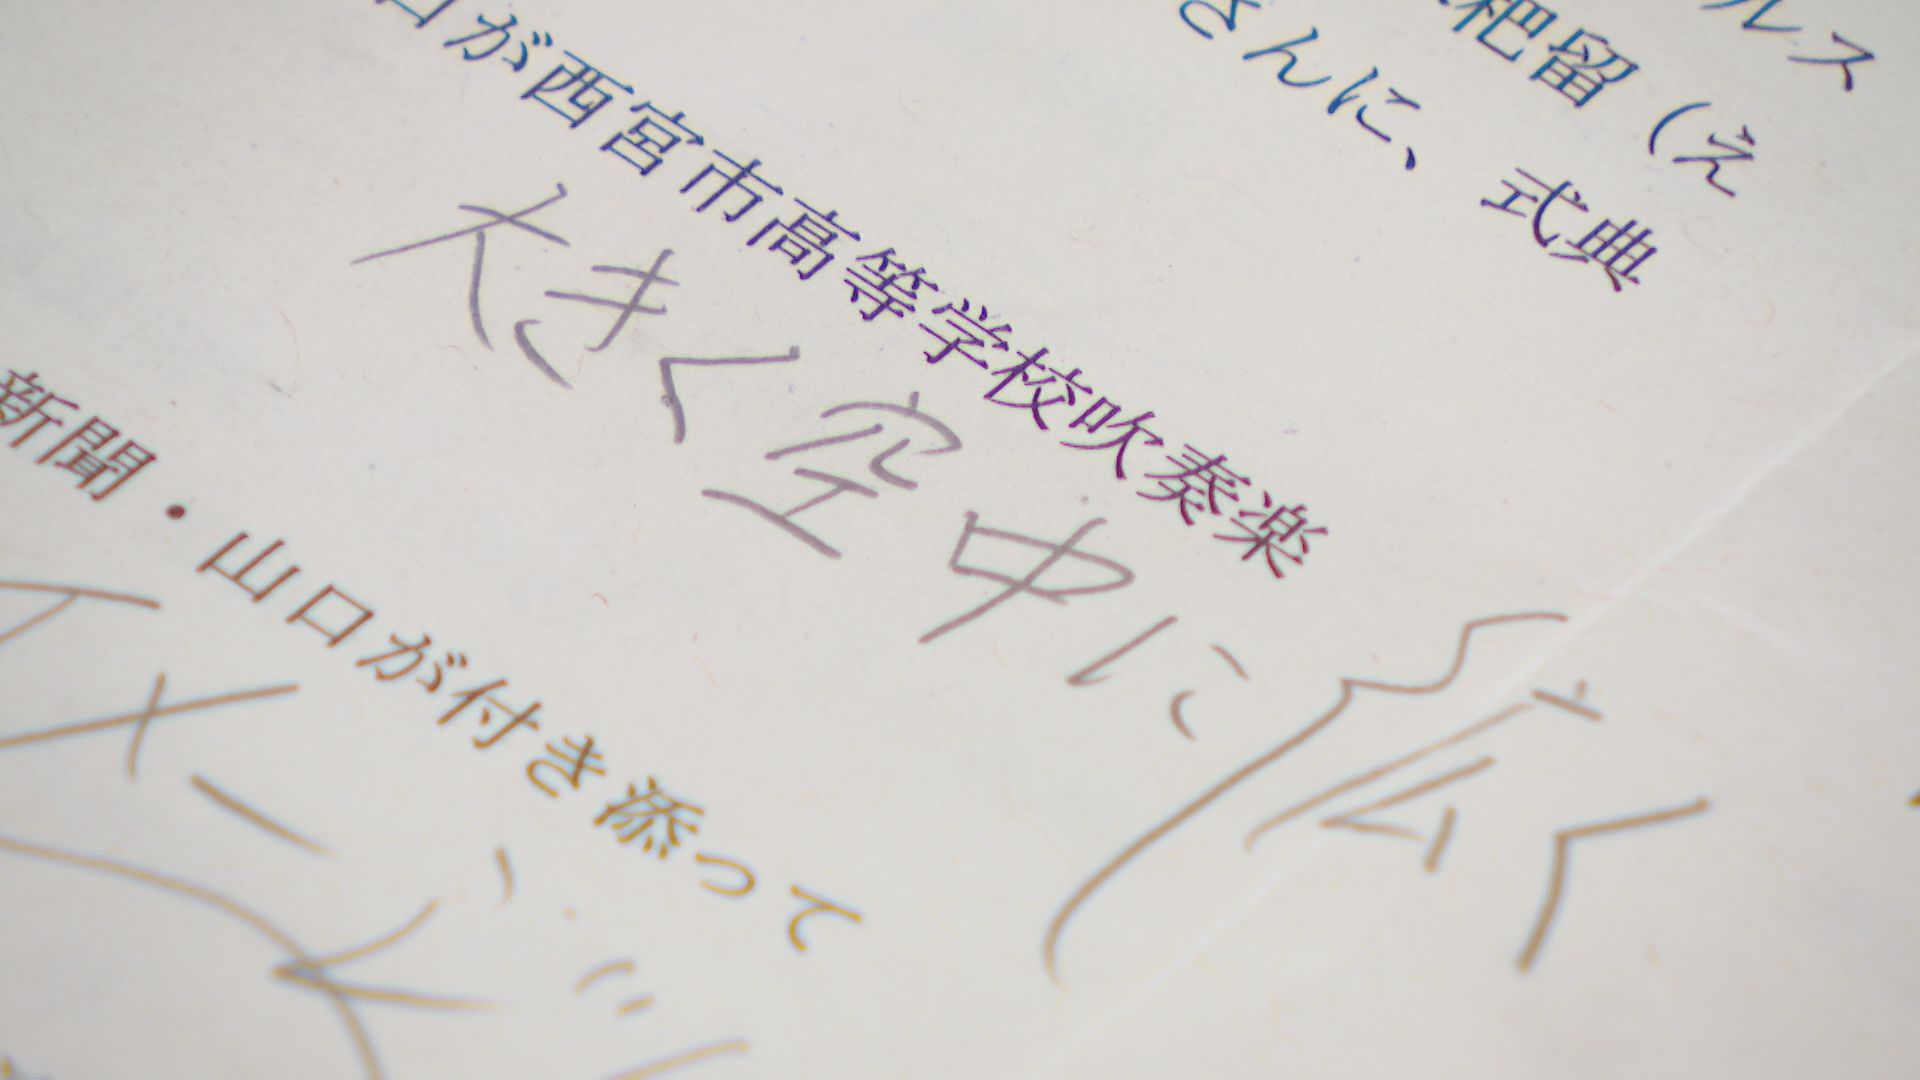 ルス
杷留（え
さんに、式典
口が西宮市高等学校吹奏楽
大きく空中に広く
新聞・山口が付き添って
イメージ